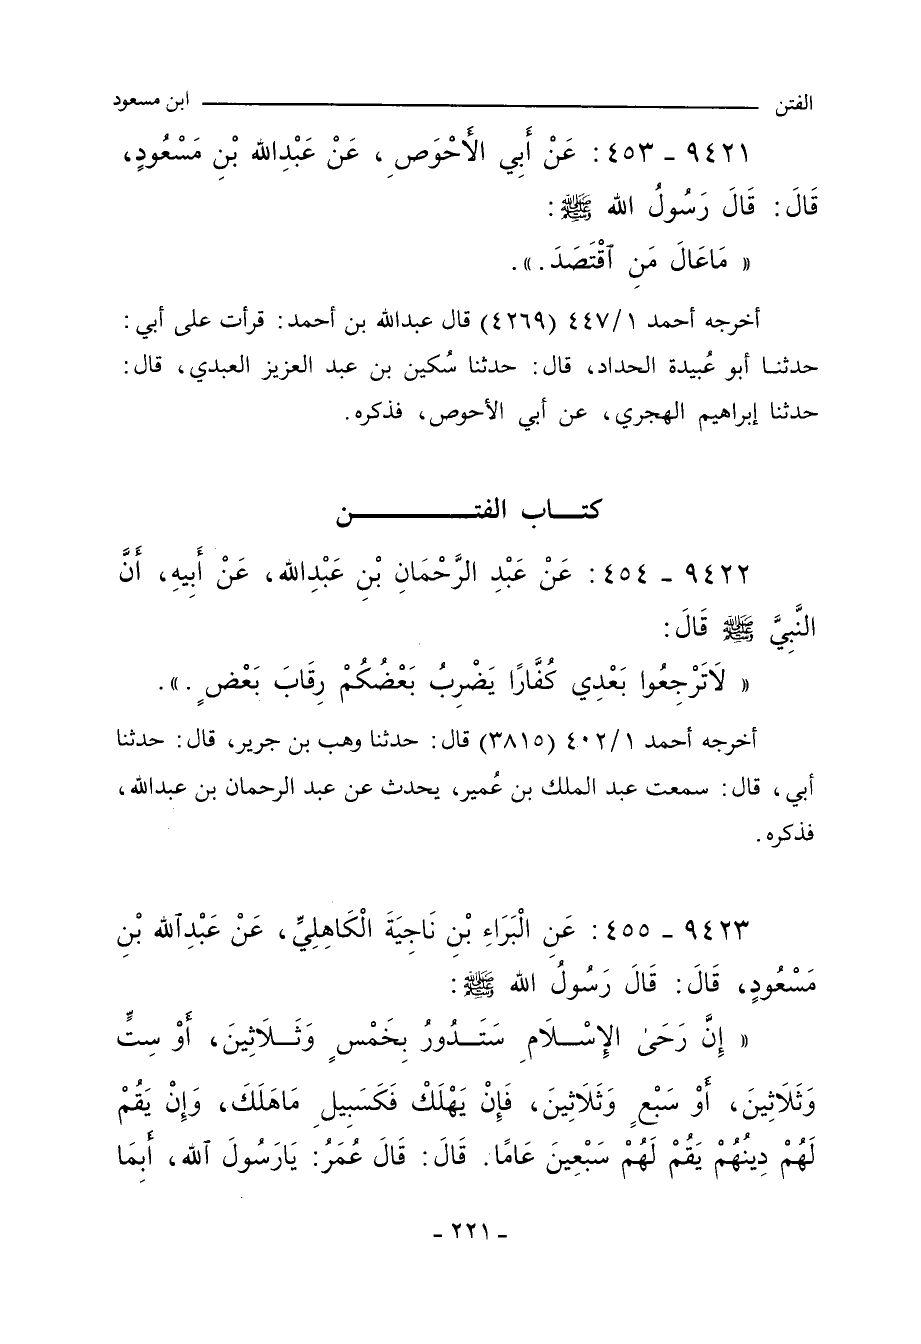 الفتن ـــــــــــــــــــــــــــــــــ ابن مسعود
٩٤٢١ ـ ٤٥٣ : عَنْ أَبِي الأَحْوَصِ ، عَنْ عَبْدِالله بْنِ مَسْعُودٍ،
قَالَ : قَالَ رَسُولُ الله ﷺ :
« مَاعَالَ مَنِ ٱقْتَصَدَ . ».
أخرجه أحمد ٤٤٧/١ (٤٢٦٩) قال عبدالله بن أحمد : قرأت على أبي :
حدثنـا أبو عُبيدة الحداد، قال : حدثنا سُكين بن عبد العزيز العبدي ، قال :
حدثنا إبراهيم الهجري ، عن أبي الأحوص ، فذكره .
كتــاب الفتــــــــــن
٩٤٢٢ ـ ٤٥٤ : عَنْ عَبْدِ الرَّحْمَانِ بْنِ عَبْدِالله، عَنْ أَبِيهِ ، أَنَّ
النَّبِيَّ ﷺ قَالَ :
« لَاتَرْجِعُوا بَعْدِي كُفَّارًا يَضْرِبُ بَعْضُكُمْ رِقَابَ بَعْضٍ . ».
أخرجه أحمد ٤٠٢/١ (٣٨١٥) قال : حدثنا وهب بن جرير، قال : حدثنا
أبي ، قال : سمعت عبد الملك بن عُمير، يحدث عن عبد الرحمان بن عبدالله ،
فذكره .
٩٤٢٣ ـ ٤٥٥ : عَنِ الْبَرَاءِ بْنِ نَاجِيَةَ الْكَاهِلِيِّ ، عَنْ عَبْدِٱلله بْنِ
مَسْعُودٍ، قَالَ : قَالَ رَسُولُ الله ﷺ :
« إِنَّ رَحَىٰ الإِسْــلَامِ سَتَــدُورُ بِخَمْسٍ وَثَــلَاثِينَ ، أَوْ سِتٍّ
وَثَلَاثِينَ ، أَوْ سَبْعٍ وَثَلَاثِينَ ، فَإِنْ يَهْلَكْ فَكَسَبِيلِ مَاهَلَكَ ، وَإِنْ يَقُمْ
لَهُمْ دِينُهُمْ يَقُمْ لَهُمْ سَبْعِينَ عَامًا . قَالَ : قَالَ عُمَرُ : يَارَسُولَ ٱلله ، أَبِمَا
ـ ٢٢١ ـ